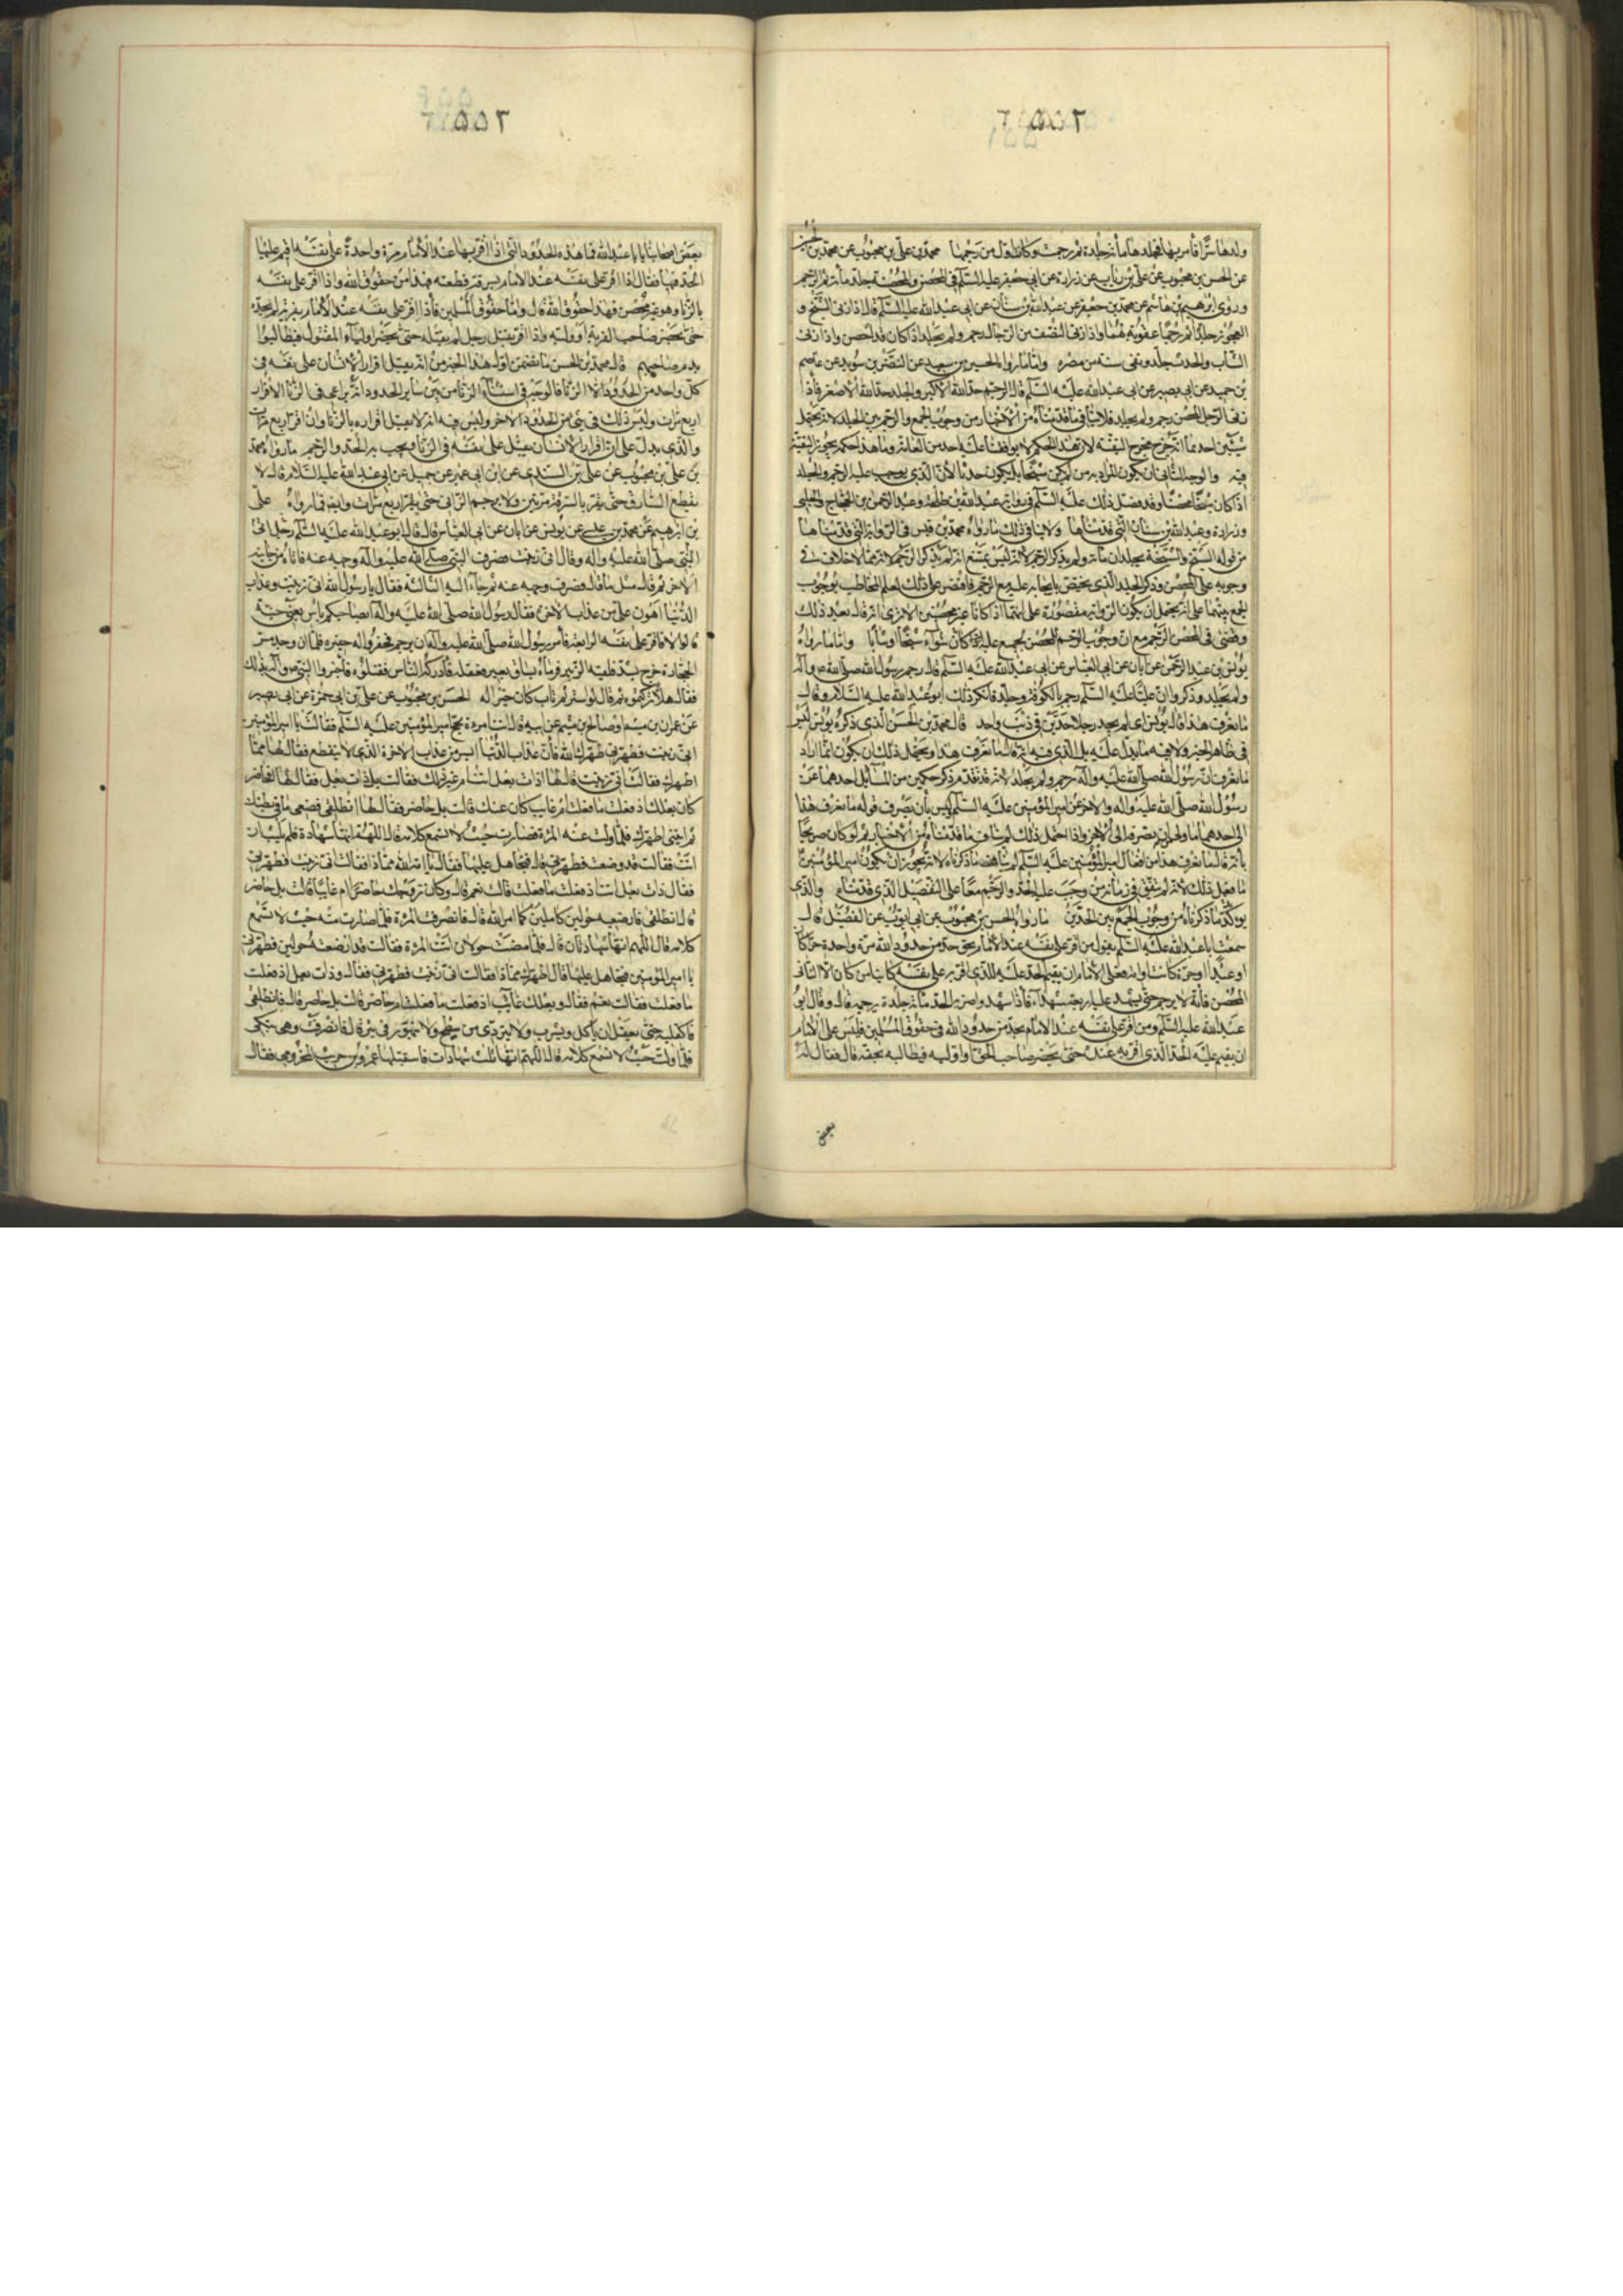 ولدها سرًا فأمر بها فجلدها مأئة جلدة ثم رجمت وكان اول من رجمها محمد بن علي بن محبوب عن محمد بن الحسين
عن الحسن بن محبوب عن علي بن رئاب عن زرارة عن ابي جعفر عليه السلم في المحصن والمحصنة جلد مأئة ثم الرجم
وروى ابرهيم بن هاشم عن محمد بن جعفر عن عبد الله بن سنان عن ابي عبد الله عليه السلم قال اذا زنى الشيخ و
العجوز جلدا ثم رجما عقوبة لهما واذا زنى النصف من الرجال رجم ولم يجلد اذا كان قد احصن واذا زنى
الشاب والحدث جلد ونفى سنة من مصره واما ما رواه الحسين بن سعيد عن النضر بن سويد عن عاصم
بن حميد عن ابي بصير عن ابي عبد الله عليه السلم قال الرجم حد الله الأكبر والجلد حد الله الأصغر فأذا
زنى الرجل المحصن رجم ولم يجلد فلا ينافي ما قدمناه من الاخبار من وجوب الجمع والرجم بين الجلد لانه يحتمل
شيئين احدهما انه خرج مخرج التقية لان هذا الحكم لا يوافقنا عليه احد من العامة وما هذا حكمه يجوز التقية
فيه والوجه الثاني ان يكون المراد به من لم يكن شيخا بل يكون حدثا لأن الذي يوجب عليه الرجم والجلد
اذا كان شيخا محصنا وقد فصل ذلك عليه السلم في رواية عبد الله بن طلحة وعبد الرحمن بن الحجاج والحلبي
وزرارة وعبد الله بن سنان التي قدمناها ولا ينافي ذلك ما رواه محمد بن قيس في الرواية التي قدمناها
من قوله الشيخ والشيخة يجلدان مأئة ولم يذكر الرجم لأنه ليس يمتنع انه لم يذكر الرجم لانه مما لا خلاف في
وجوبه على المحصن وذكر الجلد الذي يختص بايجابه عليه مع الرجم فاقتصر على ذلك لعلم المخاطب بوجوب
الجمع بينهما على انه يحتمل ان يكون الرواية مقصورة على انهما اذا كانا غير محصنين الا ترى انه قال بعد ذلك
وقضى في المحصن الرجم مع ان وجوب الرجم للمحصن مجمع عليه اذا كان سواء شيخا او شابا واما ما رواه
يونس بن عبد الرحمن عن ابان عن ابي العباس عن ابي عبد الله عليه السلم قال رجم رسول الله صلى الله عليه وآله
ولم يجلد وذكروا ان عليا عليه السلم رجم بالكوفة وجلد فانكر ذلك ابو عبد الله عليه السلام وقال
ما نعرف هذا قال يونس اي لم يجد رجلا حدين في ذنب واحد قال محمد بن الحسن الذي ذكره يونس ليس
في ظاهر الخبر ولا فيه ما يدل عليه بل الذي فيه انه قال ما نعرف هذا ويحتمل ذلك ان يكون انما اراد
ما نعرف ان رسول الله صلى الله عليه وآله رجم ولم يجلد لانه قد تقدم ذكر حكمين من المسائل احدهما عن
رسول الله صلى الله عليه وآله والاخر عن امير المؤمنين عليه السلم وليس بأن يصرف قوله ما نعرف هذا
الى احدهما باولى من ان يصرف الى الاخر واذا احتمل ذلك لم يناف ما قدمناه من الأخبار ثم لو كان صريحا
بأنه قال ما نعرف هذا من افعال امير المؤمنين عليه السلم لم يناقض ما ذكرناه لانه يجوز ان يكون امير المؤمنين
ما فعل ذلك لانه لم يتفق في زمانه من وجب عليه الجلد والرجم معا على التفصيل الذي قدمناه والذي
يوكد ما ذكرناه من وجوب الجمع بين الحدين ما رواه الحسن بن محبوب عن ابي ايوب عن الفضيل قال
سمعت ابا عبد الله عليه السلم يقول من اقر على نفسه عند الأمام بحق حد من حدود الله مرة واحدة حرا كان
او عبدا او حرة كانت او امة فعلى الأمام ان يقيم الحد عليه للذي اقر به على نفسه كائنا من كان الا الزاني
المحصن فأنه لا يرجم حتى يشهد عليه اربعة شهداء فأذا شهدوا ضربه الحد مأئة جلدة ثم يرجمه قال وقال ابو
عبد الله عليه السلم ومن اقر على نفسه عند الامام بحد من حدود الله في حقوق المسلمين فليس على الأمام
ان يقيم عليه الحد الذي اقر به عنده حتى يحضر صاحب الحق او وليه فيطالبه بحقه قال فقال له
بعض
بعض اصحابنا يا با عبد الله فما هذه الحدود التي اذا اقر بها عند الأمام مرة واحدة على نفسه اقيم عليه
الحد فيها فقال اذا اقر على نفسه عند الامام بسرقة قطعه فهذا من حقوق الله واذا اقر على نفسه
بالزنا وهو غير محصن فهذا حقوق الله قال واما حقوق المسلمين فأذا اقر على نفسه عند الأمام بفرية لم يحده
حتى يحضر صاحب الفرية او وليه واذا اقر بقتل رجل لم يقتله حتى يحضر اولياء المقتول فيطالبوا
بدم صاحبهم قال محمد بن الحسن ما تضمن اول هذا الخبر من انه يقبل اقرار الانسان على نفسه في
كل واحد من الحدود الا الزنا فالوجه في استثناء الزنا من بين ساير الحدود انه يراعى في الزنا الاقرار
اربع مرات وليس ذلك في شئ من الحدود الاخر وليس فيه انه لا يقبل اقراره بالزنا وان اقر اربع مرات
والذي يدل على ان اقرار الانسان يقبل على نفسه في الزنا ويجب به الحد والرجم ما رواه محمد
بن علي بن محبوب عن علي بن السندي عن ابن ابي عمير عن جميل عن ابي عبد الله عليه السلام قال لا
يقطع السارق حتى يقر بالسرقة مرتين ولا يرجم الزاني حتى يقر اربع مرات وايضا فما رواه علي
بن ابرهيم عن محمد بن عيسى عن يونس عن ابان عن ابي العباس قال قال ابو عبد الله عليه السلم رجل اتى
النبي صلى الله عليه وآله وقال اني زنيت فصرف النبي صلى الله عليه وآله وجهه عنه فاتاه من جانبه
الاخر ثم قال مثل ما قال فصرف وجهه عنه ثم جاء اليه الثالثة فقال يا رسول الله اني زنيت وعذاب
الدنيا اهون علي من عذاب الاخرة فقال رسول الله صلى الله عليه وآله ابصاحبكم باس يعني جنة
قالوا لا فاقر على نفسه الرابعة فأمر رسول الله صلى الله عليه وآله ان يرجم فحفروا له حفيرة فلما ان وجد مس
الحجارة خرج يشتد فلقيه الزبير فرماه بساق بعير فعقله فأدركه الناس فقتلوه فأخبروا النبي ص وآله بذلك
فقال هلا تركتموه ثم قال لو استتر ثم تاب كان خير اله الحسن بن محبوب عن علي بن ابي حمزة عن ابي بصير
عن عمران بن ميثم او صالح بن ميثم عن ابيه قال اتت امرءة مجح امير المؤمنين عليه السلم فقالت يا امير المؤمنين
اني زنيت فطهرني طهرك الله فأن عذاب الدنيا ايسر من عذاب الاخرة الذي لا ينقطع فقال لها مما
اطهرك فقالت اني زنيت قال لها اذات بعل انت ام غير ذلك فقالت بل ذات بعل فقال لها افحاضر
كان بعلك اذ فعلت ما فعلت ام غايب كان عنك قالت بل حاضر فقال لها انطلقي فضعي ما في بطنك
ثم ايتني اطهرك فلما ولت عنه المرءة فصارت حيث لا تسمع كلامه قال اللهم انها شهادة فلم يلبث ان
اتته فقالت قد وضعت فطهرني قال فتجاهل عليها فقال يا امة الله مماذا فقالت اني زنيت فطهرني
فقال ذات بعل انت اذ فعلت ما فعلت قالت نعم قال وكان زوجك حاضرا ام غايبا قالت بل حاضر
قال انطلقي فارضعيه حولين كاملين كما امر الله قال فانصرفت المرءة فلما صارت منه حيث لا تسمع
كلامه قال اللهم انها شهادتان قال فلما مضت حولان اتت المرءة فقالت قد ارضعته حولين فطهرني
يا امير المؤمنين فتجاهل عليها قال اطهرك مماذا فقالت اني زنيت فطهرني فقال وذات بعل اذ فعلت
ما فعلت فقالت نعم فقال وبعلك غايب اذ فعلت ما فعلت ام حاضر قالت بل حاضر قال فانطلقي
فاكفليه حتى يعقل ان يأكل ويشرب ولا يتردى من سطح ولا يتهور في بئر قال فانصرفت وهي تبكي
فلما ولت حيث لا تسمع كلامه قال اللهم انها ثلث شهادات فاستقبلها عمرو بن حريث المخزومي فقال